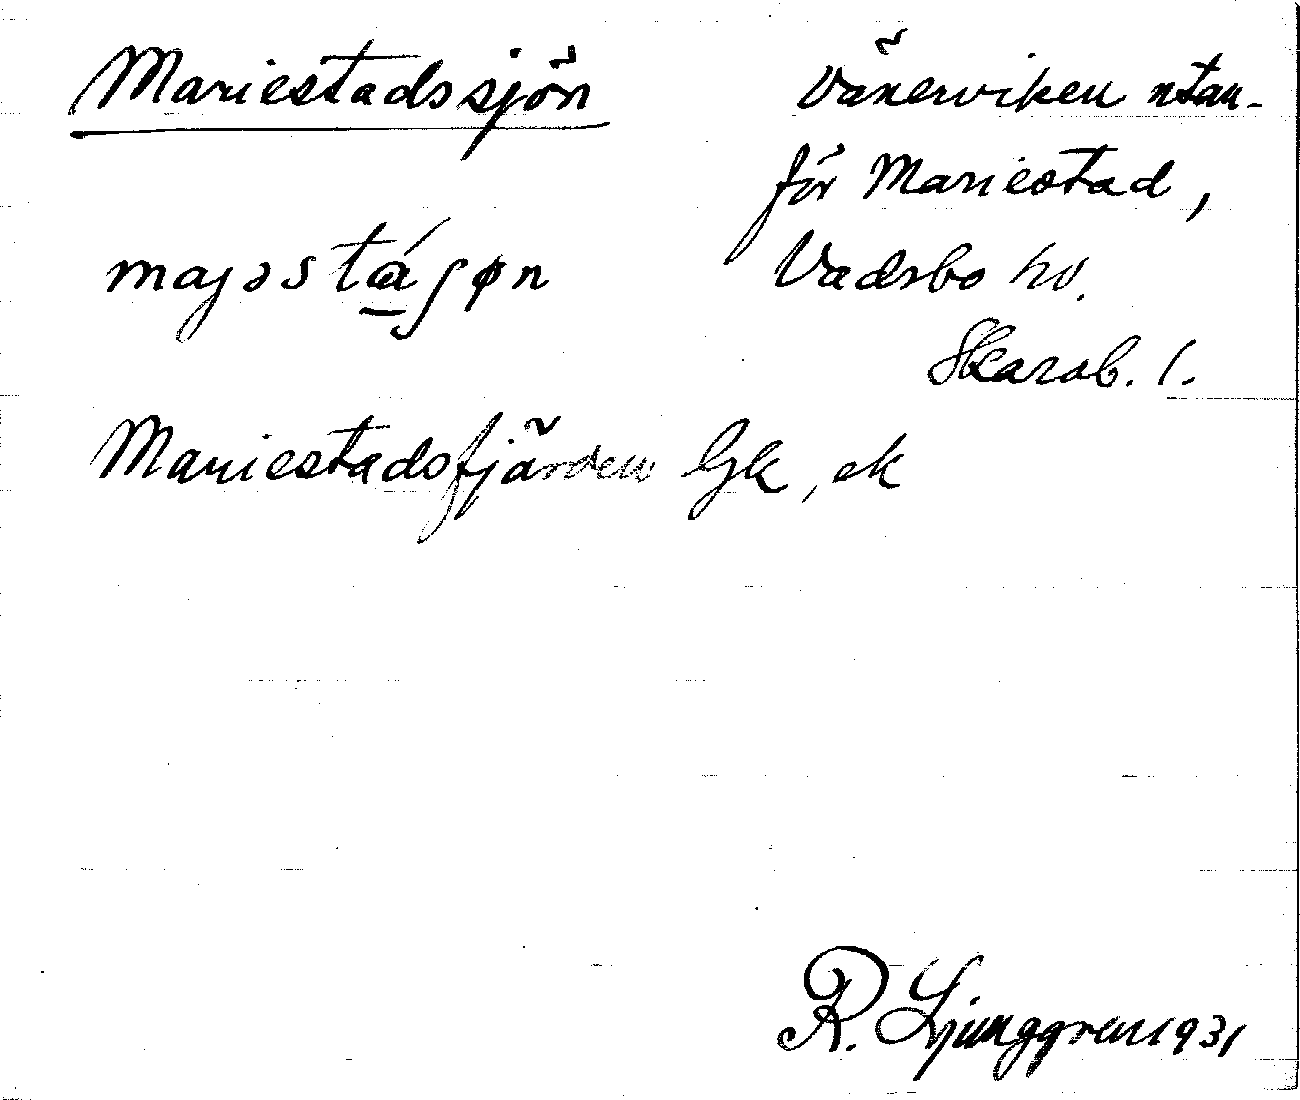 Mariestadssjön
Vänerviken utan-
för Mariestad,
Vadsbo hd.
Skarab. l.
majəstáʃøn
Mariestadsfjärden Gk, ek
R. Ljunggren 1931